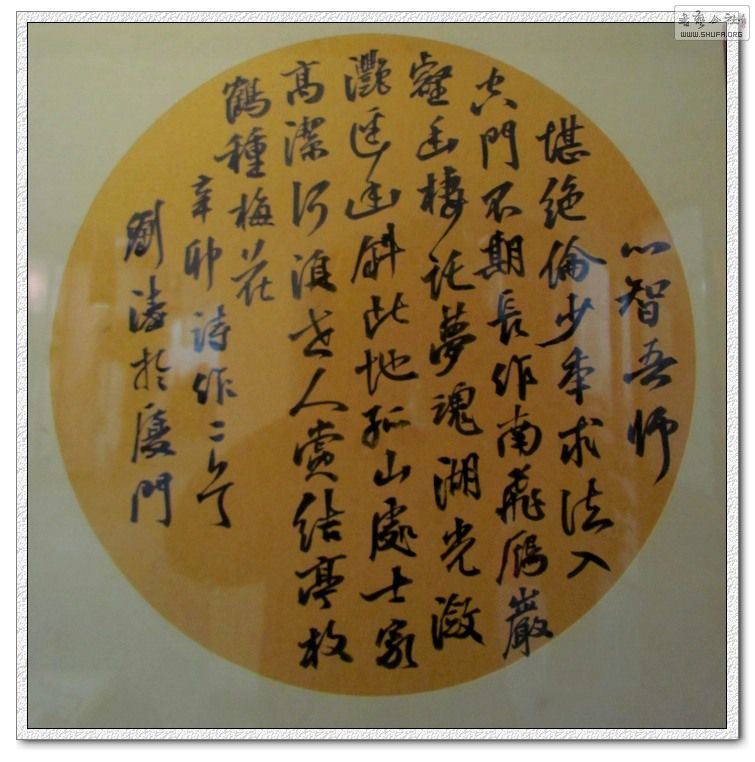 心智吾師
堪絕倫少年求法入
空門不期長作南飛雁巖
壑幽棲託夢魂湖光瀲
灩逕幽斜此地孤山處士家
高潔何須世人賞結亭放
鶴種梅花
辛卯詩作二首
劉濤於廈門
書藝公社
WWW.SHUFA.ORG